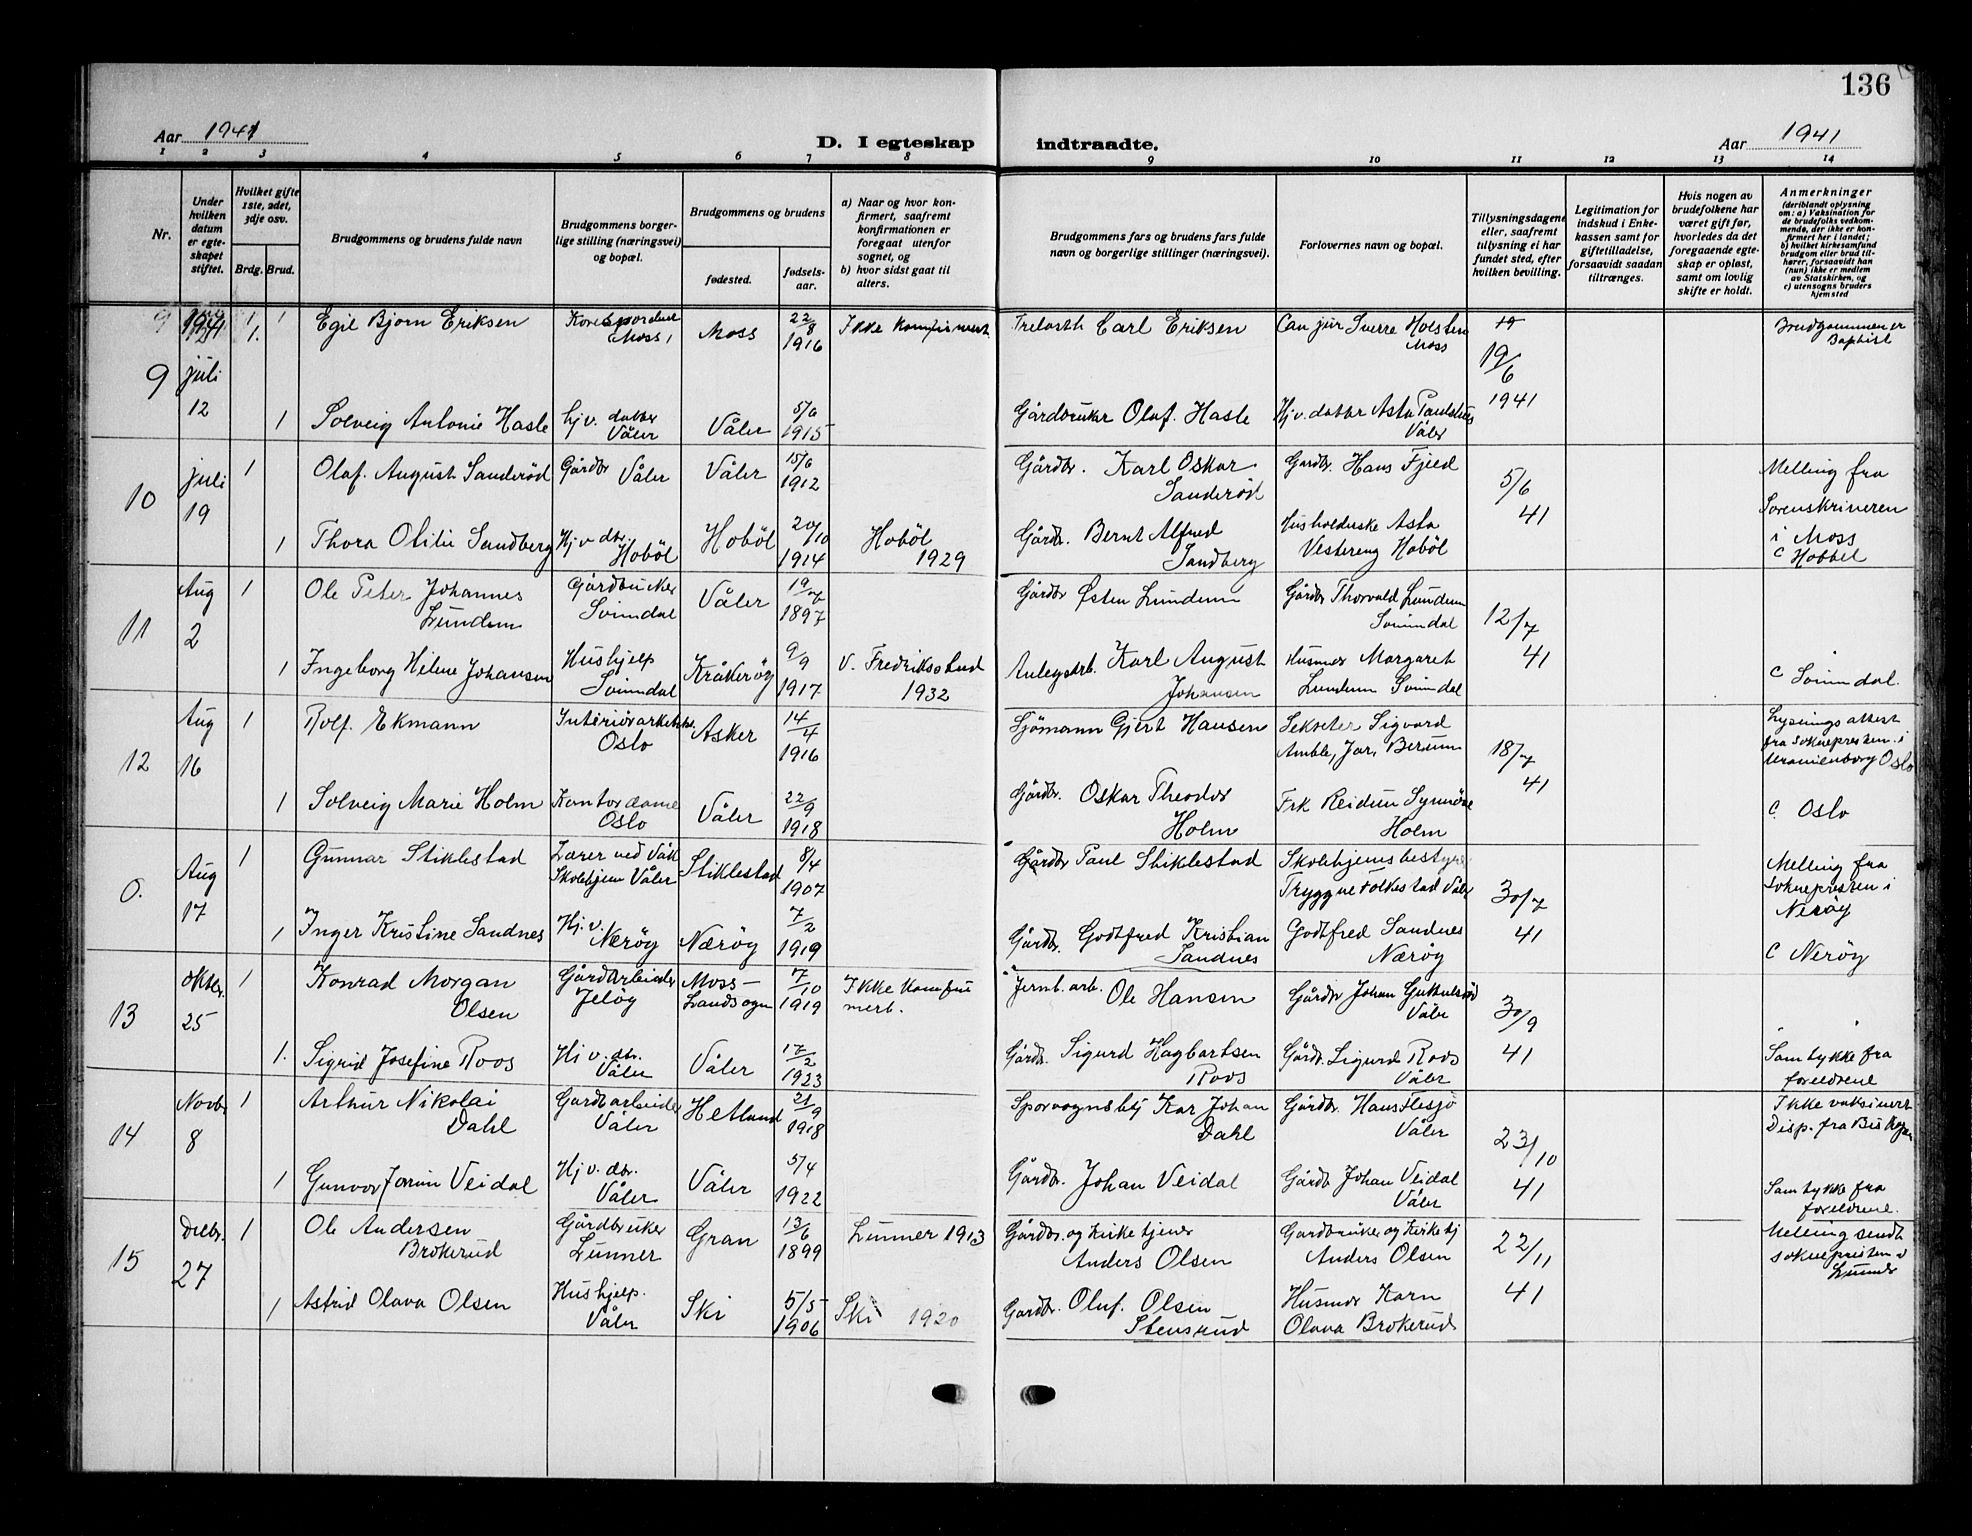 136
Aar 1941
D. I egteskap
indtraadte.
Aar 1941
1 2 3 4 5 6 7 8 9 10 11 12 13 14
Nr.
Under hvilken datum er egteskapet stiftet.
Hvilket gifte 1ste, 2det, 3dje osv.
Brdg. Brud.
Brudgommens og brudens fulde navn
Brudgommens borgerlige stilling (næringsvei) og bopæl.
Brudgommens og brudens
fødested.
fødselsaar.
a) Naar og hvor konfirmert, saafremt konfirmationen er foregaat utenfor sognet, og
b) hvor sidst gaat til alters.
Brudgommens fars og brudens fars fulde navn og borgerlige stillinger (næringsvei).
Forlovernes navn og bopæl.
Tillysningsdagene eller, saafremt tillysning ei har fundet sted, efter hvilken bevilling.
Legitimation for indskud i Enkekassen samt for giftetilladelse, forsaavidt saadan tiltrænges.
Hvis nogen av brudefolkene har været gift før, hvorledes da det foregaaende egteskap er opløst, samt om lovlig skifte er holdt.
Anmerkninger (deriblandt oplysning om: a) Vaksination for de brudefolks vedkommende, der ikke er konfirmert her i landet; b) hvilket kirkesamfund brudgom eller brud tilhører, forsaavidt han (hun) ikke er medlem av Statskirken, og c) utensogns bruders hjemsted
9 juli 12 1 Egil Bjørn Eriksen Moss Moss 22/8 1916 Ikke konfirmert Carl Eriksen Can jur Sverre Holsten Moss 19/6 1941 Brudgommen er Baptist
1 Solveig Antonie Hasle hj v. datter Våler Våler 5/6 1915 Gårdbruker Olaf Hasle Hj v. datter Asta Våler
10 juli 19 1 Olaf August Sanderød Gårdbr Våler Våler 15/6 1912 Gårdbr. Karl Oskar Sanderød Gardbr. Hans Fjeld 5/6 41 Melling fra Sorenskriveren i Moss
1 Thora Otilie Sandberg Hj v dtr. Hobøl Hobøl 20/10 1914 Hobøl 1929 Gårdb. Bernt Alfred Sandberg Husholderske Asta Vestereng Hobøl c Hobbel
11 Aug 2 1 Ole Peter Johannes Lundem Gårdbruker Svinndal Våler 19/7 1897 Gårdbr Østen Lundem Gårdbr Thorvald Lundem Svinndal 12/7 41
1 Ingeborg Helene Johansen Hushjelp Svinndal Kråkerøy 9/9 1917 V. Fredrikstad 1932 Anlegsarb. Karl August Johansen Husmor Margaret Lundem Svinndal c Svinndal.
12 Aug 16 1 Rolf Ekmann Interiørarkitekt Oslo Asker 14/4 1916 Sjømann Gjert Hansen Sekretær Sigvard Amble, Jar, Berum 18/7 41 Lysnings attest fra soknepresten i Uranienborg Oslo
1 Solveig Marie Holm Kontordame Oslo Våler 22/9 1918 Gårdbr. Oskar Theodor Holm Frk Reidun Synnøve Holm c. Oslo
0. Aug 17 1 Gunnar Stiklestad Lærer ved Våk Skolehjem Våler Stiklestad 8/4 1907 Gårdbr Paul Stiklestad Skolehjemsbestyrer Tryggve Folkestad Våler 30/7 41 Melling fra soknepresten i Nerøy
1 Inger Kristine Sandnes Hj. v. Nærøy Nærøy 7/2 1919 Gårdbr. Godtfred Kristian Sandnes Godtfred Sandnes Nærøy c Nerøy
13 oktbr. 25 1 Konrad Morgan Olsen Gårdarbeider Jeløy Moss - Landsogn 7/10 1919 Ikke konfirmert. Jernb. arb. Ole Hansen Gårdbr Johan Våler 30/9 41
1. Sigrid Josefine Roos Hj v. dtr. Våler Våler 17/2 1923 Gårdbr. Sigurd Hagbartsen Roos Gårdbr. Sigurd Roos Våler Samtykke fra foreldrene
14 Novbr 8 1 Arthur Nikolai Dahl Gardsarbeider Våler Hetland 21/9 1918 Sporvognsbtj Kar Johan Dahl Gårdbr. Hans Flesjø Våler 23/10 41 Ikke vaksinert Disp. fra Biskopen
1 Gunvor Jorun Veidal Hj v. dtr. Våler Våler 5/4 1922 Gårdbr. Johan Veidal Gårdb Johan Veidal Våler Samtykke fra foreldrene.
15 Desbr. 27 1 Ole Andersen Brokerud Gårdbruker Lunner Gran 13/6 1899 Lunner 1913 Gårdbr. og Kirketjener Anders Olsen Gardbruker og Kirketj Anders Olsen 22/11 41 Melling sendt soknepresten i Lunner
1 Astrid Olava Olsen Hushjelp. Våler Ski 5/5 1906 Ski 1920 Gardbr. Oluf Olsen Stensrud Husmor Karn Olava Brokerud